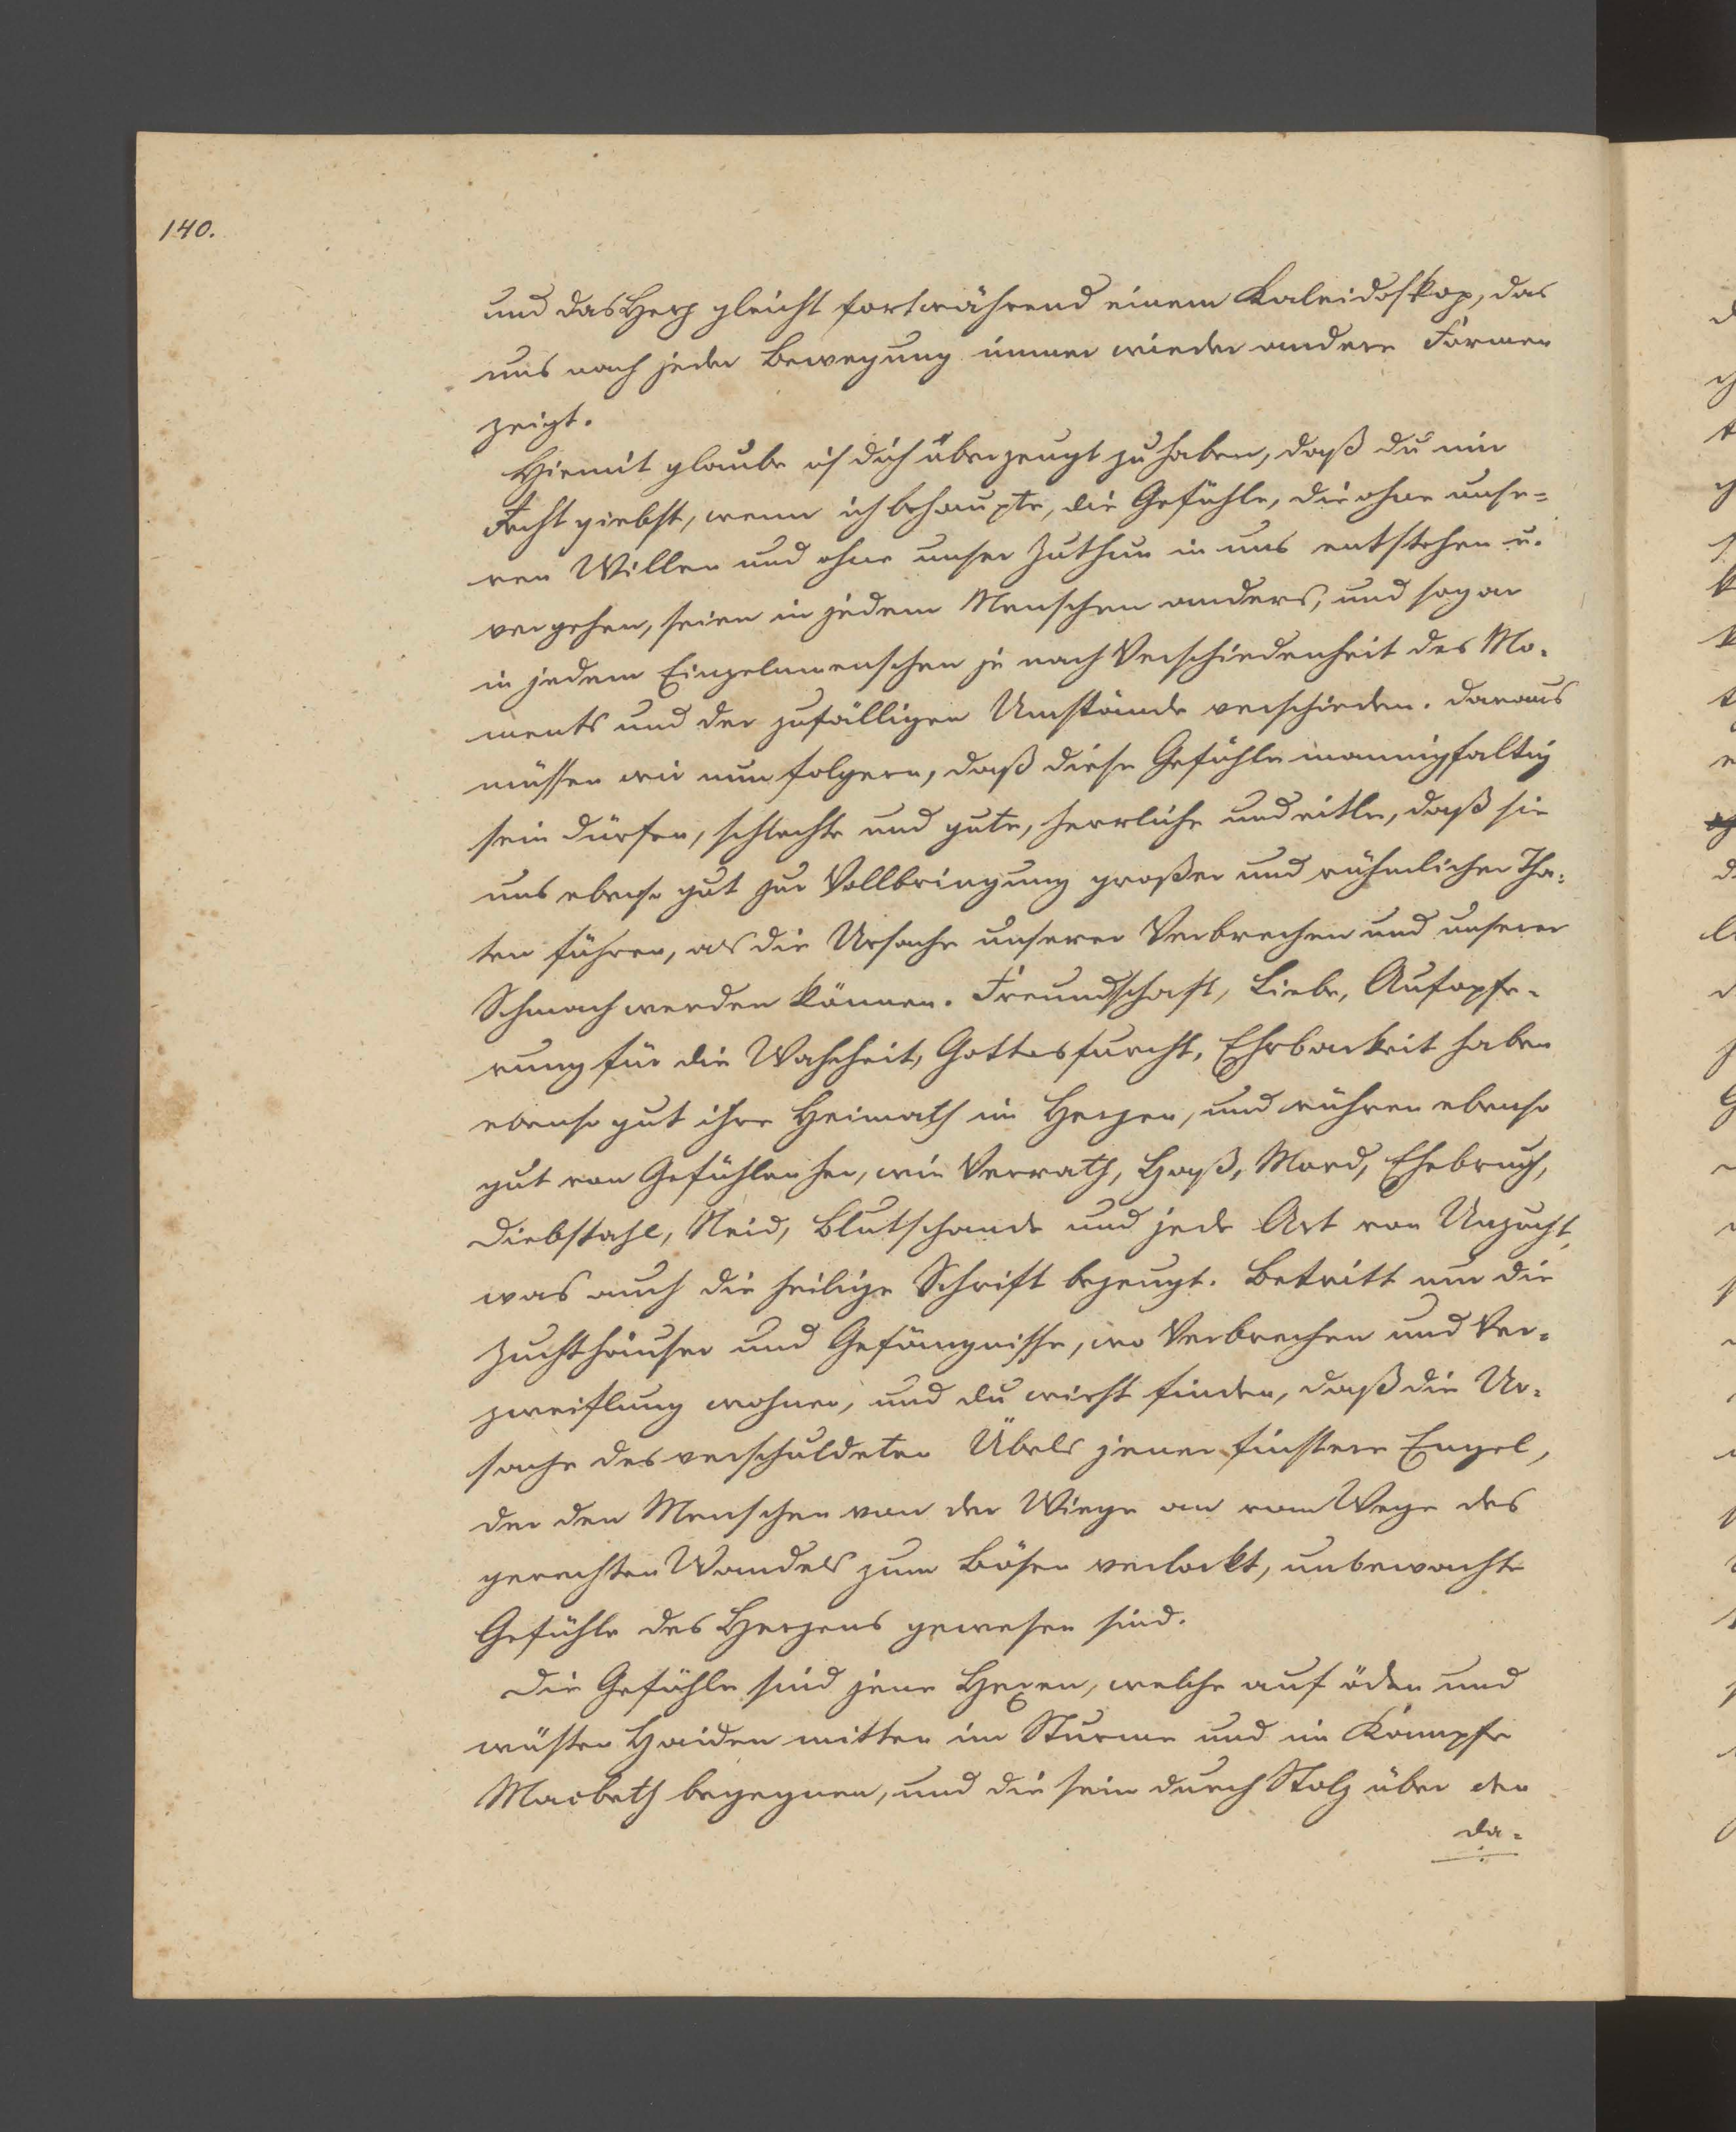 140.
und das Herz gleicht fortwährend einem Kaleidoskop, das
uns nach jeder Bewegung immer wieder andere Formen
zeigt.
Hiemit glaube ich dich überzeugt zu haben, daß du mir
Recht giebst, wenn ich behaupte, die Gefühle, die ohne unse-
ren Willen und ohne unser Zuthun in uns entstehen u.
vergehen, seien in jedem Menschen anders, und sogar
in jedem Einzelnmenschen je nach Verschiedenheit des Mo-
ments und der zufälligen Umstände verschieden. Daraus
müssen wir nun folgern, daß diese Gefühle mannigfaltig
sein dürfen, schlechte und gute, herrliche und eitle, daß sie
uns ebenso gut zur Vollbringung großer und rühmlicher Tha-
ten führen, als die Ursache unserer Verbrechen und unserer
Schmach werden können. Freundschaft, Liebe, Aufopfe-
rung für die Wahrheit, Gottesfurcht, Ehrbarkeit haben
ebenso gut ihre Heimath im Herzen, und rühren ebenso
gut von Gefühlen her, wie Verrath, Haß, Mord, Ehebruch,
Diebstahl, Neid, Blutschande und jede Art von Unzucht,
was auch die heilige Schrift bezeugt. Betritt nur die
Zuchthäuser und Gefängnisse, wo Verbrechen und Ver-
zweiflung wohnen, und du wirst finden, daß die Ur-
sache des verschuldeten Übels jener finstere Engel,
der den Menschen von der Wiege an vom Wege des
gerechten Wandels zum Bösen verlockt, unbewachte
Gefühle des Herzens gewesen sind.
Die Gefühle sind jene Hexen, welche auf öden und
wüsten Haiden mitten im Sturme und im Kampfe
Macbeth begegnen, und die sein durch Stolz über den
da-